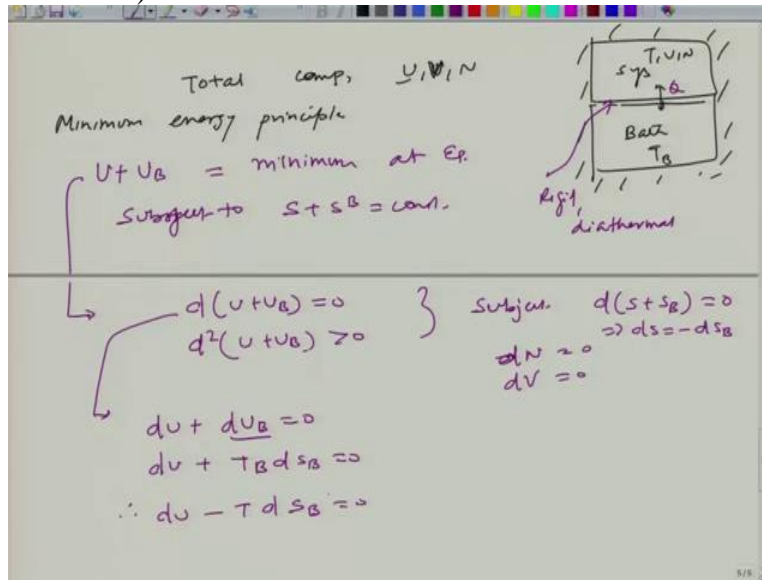 Total comp, U, V, N
Minimum energy principle
U + U_B = minimum at Eq.
Subject to S + S^B = const.
T, V, N
sys
Q
Bath
T_B
Rigid,
diathermal
d(U + U_B) = 0
d²(U + U_B) > 0
}
Subject. d(S + S_B) = 0
=> dS = -dS_B
dN = 0
dV = 0
dU + dU_B = 0
dU + T_B dS_B = 0
∴ dU - T dS_B = 0
5/5